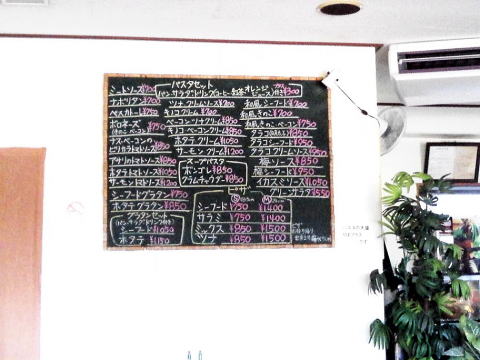 パスタセット
(パン・サラダ・ドリンク(コーヒー・紅茶・オレンジジュース)付き) ¥300
ミートソース ¥700
ナポリタン ¥700
ペスカトーレ ¥750
ボロネーズ
(きのこ・ベーコン) ¥750
ナス・ベーコンの
ピリカラトマトソース ¥850
アサリのトマトソース ¥850
ホタテトマトソース ¥1050
サーモントマトソース ¥1200
シーフードグラタン ¥750
ホタテグラタン ¥850
グラタンセット
(パン・サラダ・ドリンク付き)
シーフード ¥1050
ホタテ ¥1150
ツナクリームソース ¥700
キノコクリーム ¥700
ベーコンツナクリーム ¥850
キノコベーコンクリーム ¥850
ホタテクリーム ¥1050
サーモンクリーム ¥1200
スープパスタ
ボンゴレ ¥850
クラムチャウダー ¥850
和風シーフード ¥700
和風きのこ ¥700
和風きのこ・ベーコン ¥750
タラコ ¥850
タラコシーフード ¥950
タラコクリームソース ¥950
梅ソース ¥850
梅シーフード ¥950
イカスミソース ¥1050
グリーンサラダ ¥550
ピザ
S M
シーフード ¥750 ¥1400
サラミ ¥750 ¥1400
ミックス ¥850 ¥1500
ツナ ¥850 ¥1500